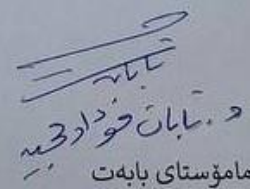 تابان
د. تابان فوئاد مجید
مامۆستای بابەت